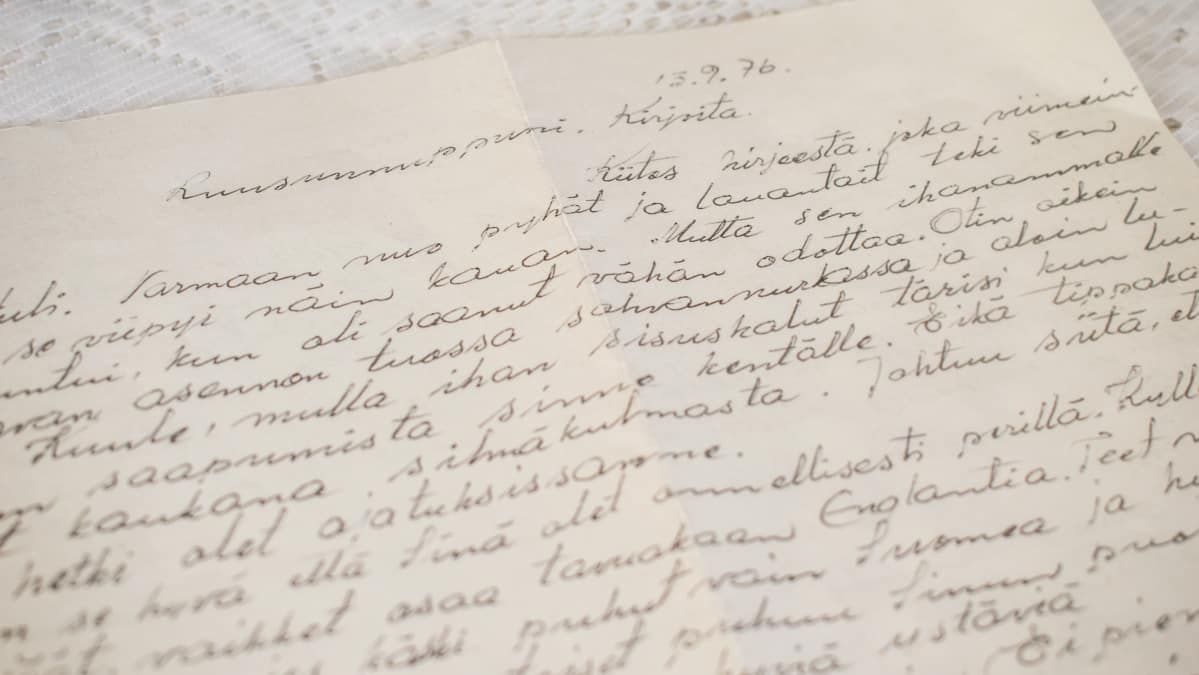 13.9.76.
Kuusunnuppuni. Kirjoita.
Kiitos kirjeestä. joka viimein-
Varmaan nuo pyhät ja lauantait teki sen
se viipyi näin kauan. Mutta sen ihanammalle
kun oli saanut vähän odottaa. Otin oikein
asennon tuossa sohvannurkassa ja aloin lu-
Kuule, mulla ihan sisuskalut tärisi kun
saapumista sinne kentälle. Eikä tippaka
kaukana silmäkulmasta. Johtuu siitä,
hetki olet ajatuksissamme.
se hyvä että Sinä olet onnellisesti perillä.
vaikket osaa tavuakaan Englantia. Teet
käski puhut vain Suomea ja
puhuu Sinun
hyviä ystäviä
Ei